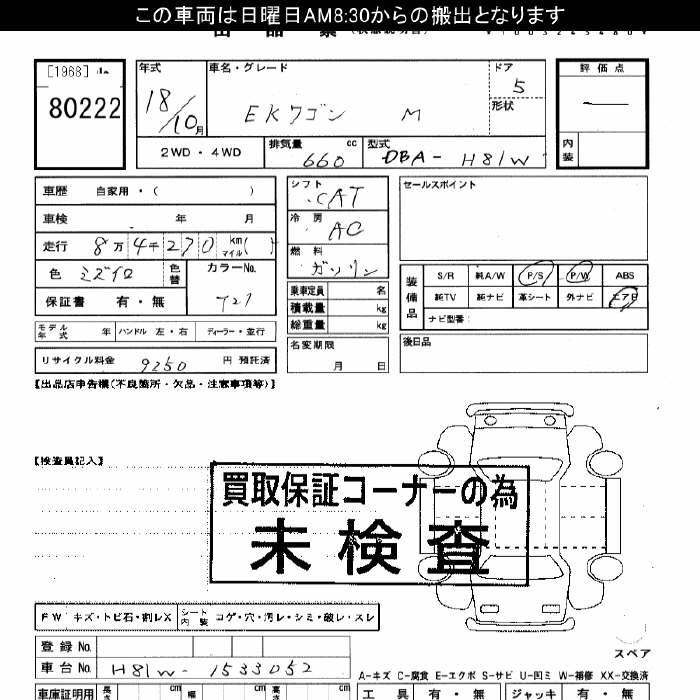 この車両は日曜日AM8:30からの搬出となります
出品票
[1968]
80222
年式 車名・グレード ドア 評価点
18/10月 EKワゴン M 5 形状 —
2WD・4WD 排気量 660 cc 型式 DBA- H81W 内装
車歴 自家用・( )
車検 年 月
走行 8万4千270 km マイル( )
色 ミズイロ 色替 カラーNo.
保証書 有・無 T27
モデル年式 年 ハンドル 左・右 ディーラー・並行
リサイクル料金 9250 円 預託済
シフト CAT
冷房 AC
燃料 ガソリン
乗車定員 名
積載量 kg
総重量 kg
名変期限 月 日
セールスポイント
装備品 S/R 純A/W P/S P/W ABS
純TV 純ナビ 革シート 外ナビ エアB
ナビ型番:
後日品
【出品店申告欄(不良箇所・欠品・注意事項等)】
【検査員記入】
買取保証コーナーの為
未検査
FW キズ・トビ石・割レX シート内装 コゲ・穴・汚レ・シミ・破レ・スレ
登録No.
車台No. H81W-1533052
スペア
A-キズ C-腐食 E-エクボ S-サビ U-凹ミ W-補修 XX-交換済
車庫証明用 長さ cm 幅 cm 高さ cm 工具 有・無 ジャッキ 有・無